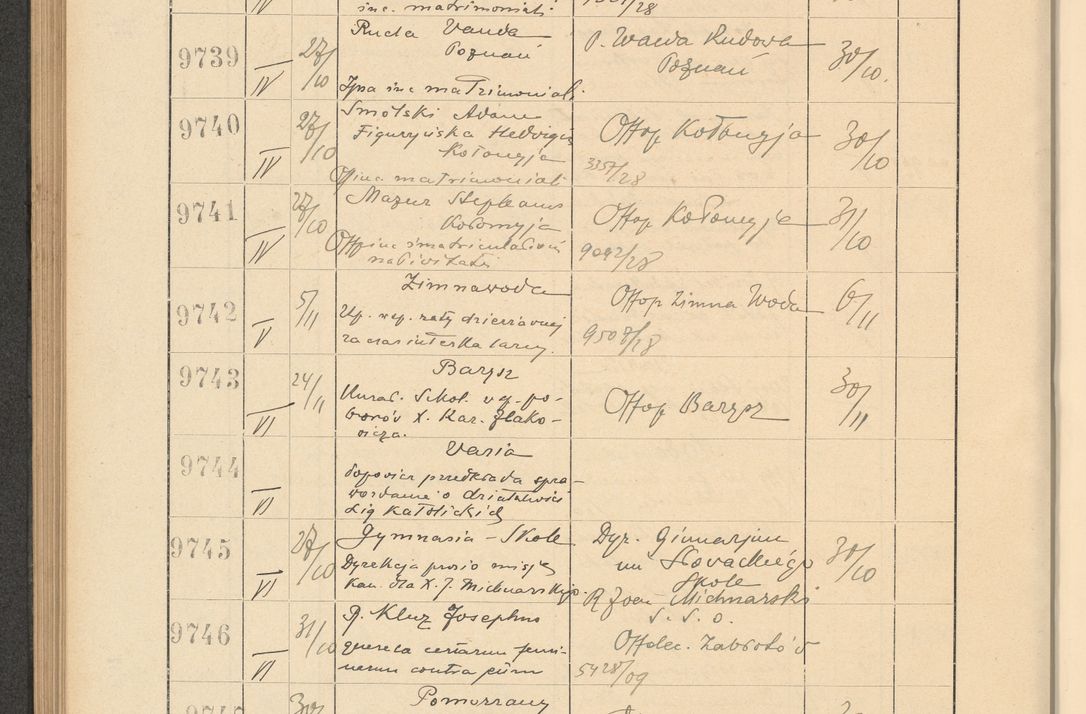 IV inc. matrimoniali. /28
9739 IV 27/10 Ruda Vanda
Poznań
Ipsa inc matrimoniali.
P. Wanda Rudowa
Poznań
30/10.
9740 IV 27/10 Smolski Adam
Figuryńska Hedvigis
Kołomyja
Off inc matrimoniali
Offop Kołomyja
3357/28
30/10
9741 IV 27/10 Mazur Stephanus
Kołomyja
Off inc
nativitatis
Offop Kołomyja
9092/28
31/10
9742 V 5/11 Zimnawoda
Up. wyp. raty dzierżawnej
za
Offop Zimna Woda
9508/28
6/11
9743 VI 24/11 Barysz
Kurat. Szkol. vg. po-
borów X. Kar.
Offop Barysz
30/11
9744 VI Varia
Popowicz przedkłada spra-
wozdanie o działalności
Lig Katolickich
9745 VI 27/10 Gymnasia - Skole
Dyrekcja prosi o misję
kan. dla X. J. Michnarskiego.
Dyr. Gimnazjum
im Słowackiego
Skole
R Joan Michnarski
S. S. O.
30/10
9746 VI 31/10 P. Kluz Josephus
querela certarum femi-
narum contra eum
Offolec. Zabłotów
5428/09
Pomorzany
30/